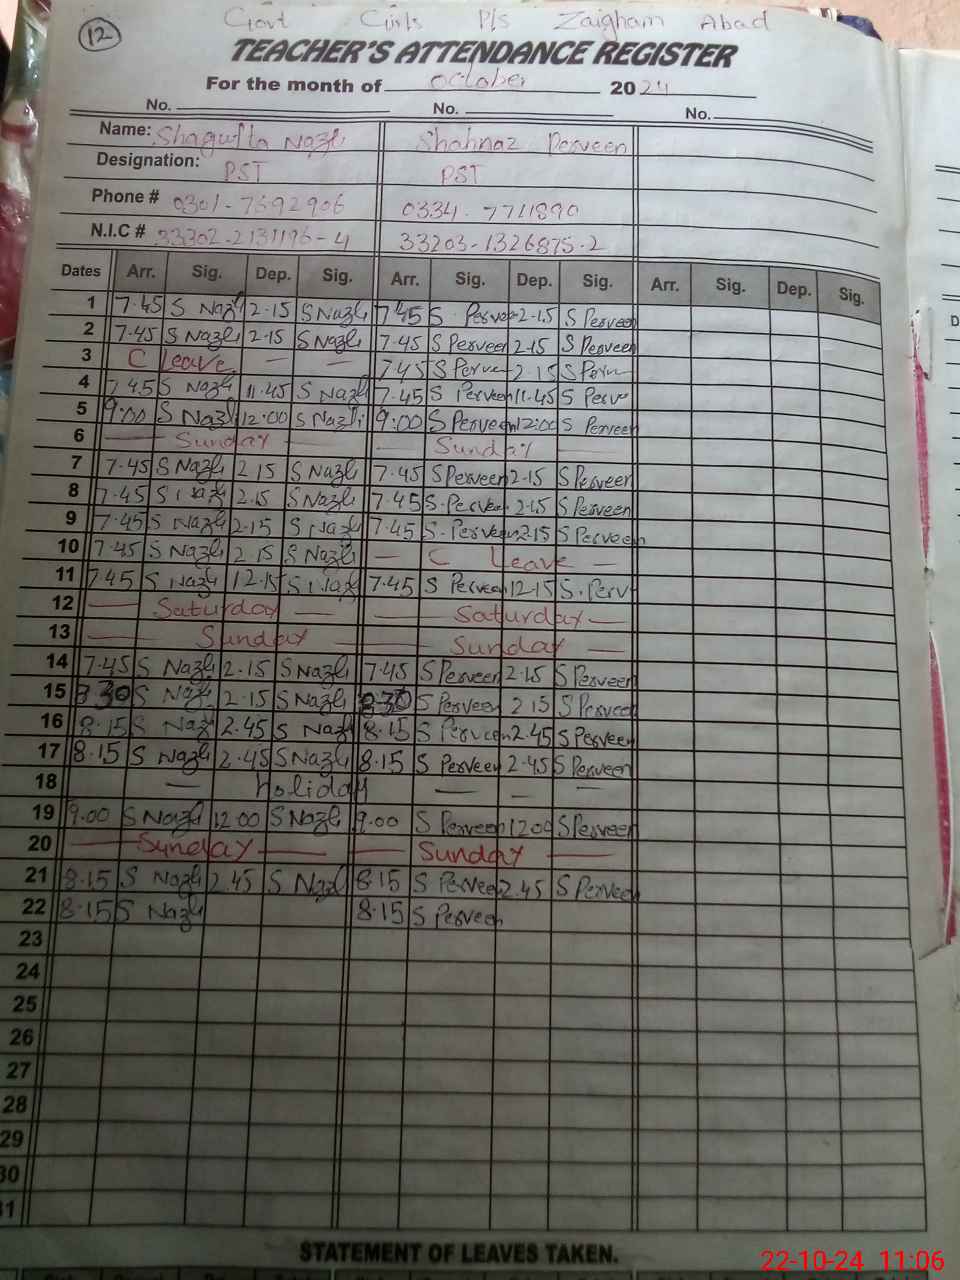 Govt Girls P/S Zaigham Abad
12
TEACHER'S ATTENDANCE REGISTER
For the month of October 2024
No. No. No.
Name: Shagufta Nazli Shahnaz Perveen
Designation: PST PST
Phone # 0301-7692906 0334-7711890
N.I.C # 33302-2131196-4 33203-1326875-2
Dates Arr. Sig. Dep. Sig. Arr. Sig. Dep. Sig. Arr. Sig. Dep. Sig.
1 7.45 S Nazli 2.15 S Nazli 7.45 S. Perveen 2.15 S Perveen
2 7.45 S Nazli 2.15 S Nazli 7.45 S Perveen 2.15 S Perveen
3 C Leave — — 7.45 S Perve 2.15 S Perv
4 7.45 S Nazli 11.45 S Nazli 7.45 S Perveen 11.45 S Perve
5 9:00 S Nazli 12:00 S Nazli 9:00 S Perveen 12:00 S Perveen
6 — Sunday — — Sunday —
7 7.45 S Nazli 2.15 S Nazli 7.45 S Perveen 2.15 S Perveen
8 7.45 S Nazli 2.15 S Nazli 7.45 S. Perveen 2.15 S Perveen
9 7.45 S Nazli 2.15 S Nazli 7.45 S. Perveen 2.15 S Perveen
10 7.45 S Nazli 2.15 S Nazli — C Leave —
11 7.45 S Nazli 12.15 S Nazli 7.45 S Perveen 12.15 S. Perv
12 — Saturday — — Saturday —
13 — Sunday — — Sunday —
14 7.45 S Nazli 2.15 S Nazli 7.45 S Perveen 2.15 S Perveen
15 8 30 S Nazli 2.15 S Nazli 8.30 S Perveen 2 15 S Perveen
16 8.15 S Nazli 2.45 S Nazli 8.15 S Perveen 2.45 S Perveen
17 8.15 S Nazli 2.45 S Nazli 8.15 S Perveen 2.45 S Perveen
18 — holiday — — —
19 9.00 S Nazli 12 00 S Nazli 9.00 S Perveen 12 00 S Perveen
20 — Sunday — — Sunday —
21 8.15 S Nazli 2.45 S Nazli 8.15 S Perveen 2.45 S Perveen
22 8.15 S Nazli 8.15 S Perveen
23
24
25
26
27
28
29
30
31
STATEMENT OF LEAVES TAKEN.
22-10-24 11:06